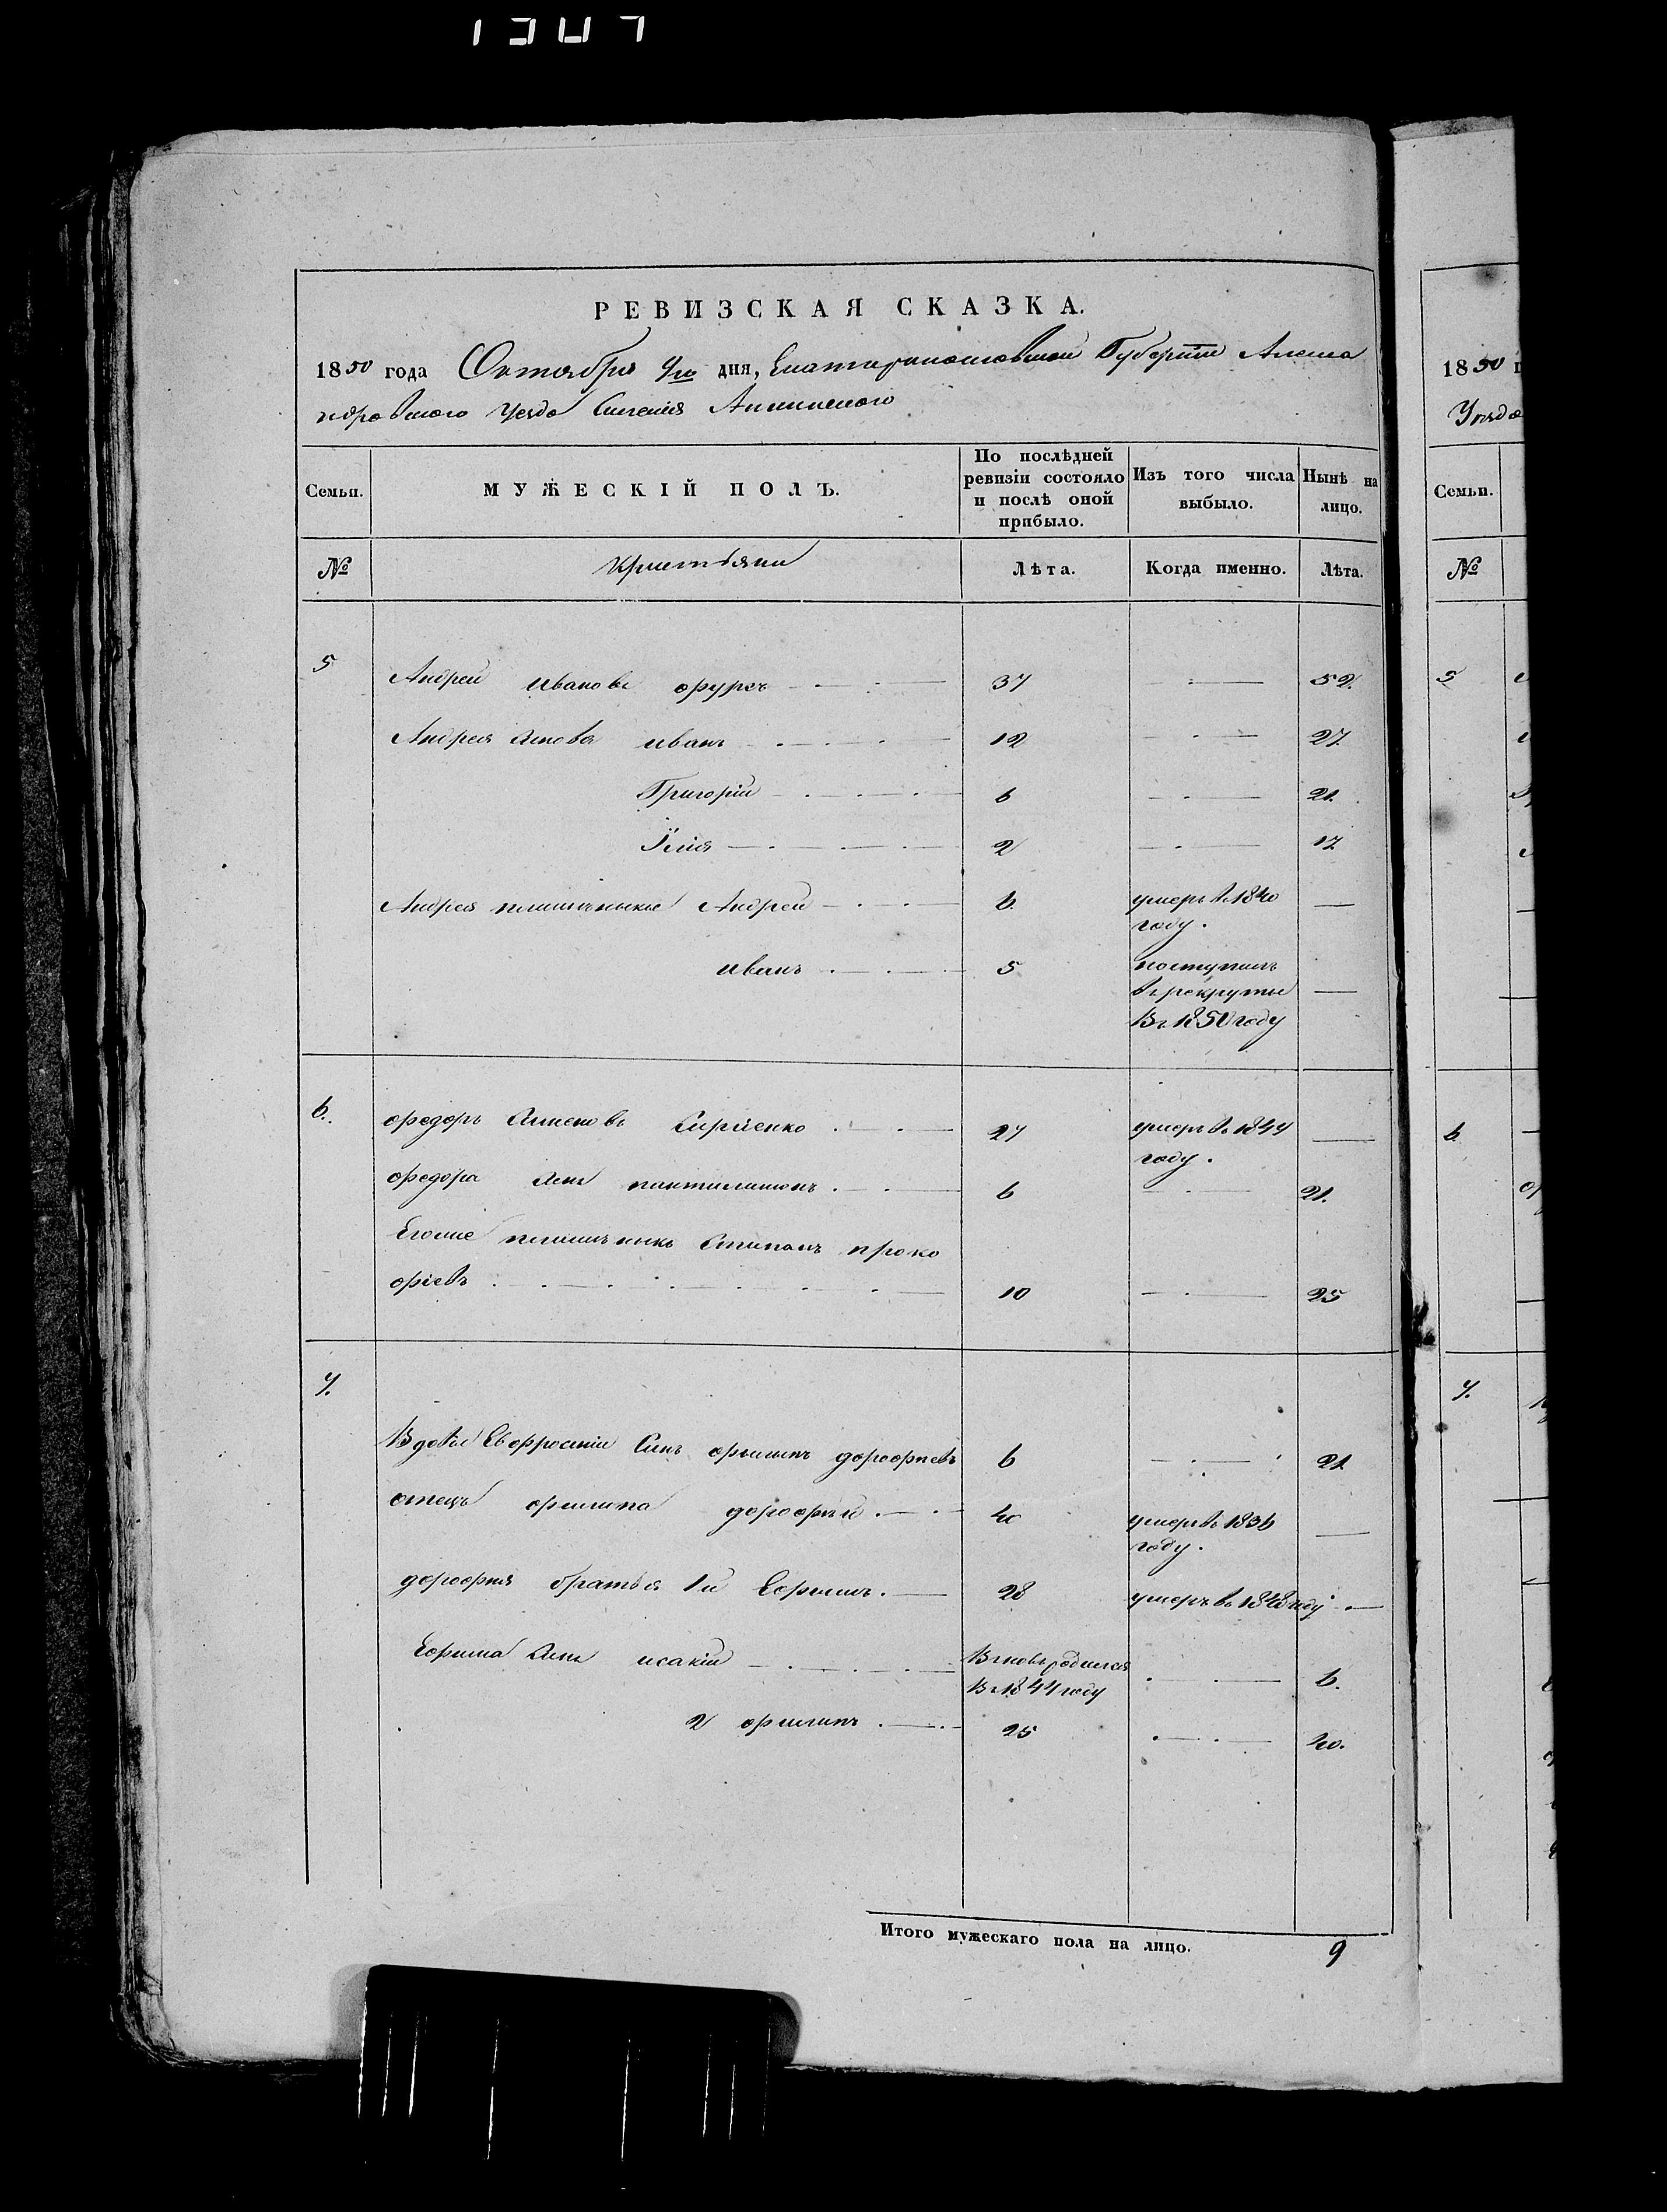 1347
РЕВИЗСКАЯ СКАЗКА.
1850 года Октября дня, Екатеринославской Губернии Алекса
ндровского уезда Селения
Семьи.
МУЖЕСКІЙ ПОЛЪ.
По послѣдней ревизіи состояло и послѣ оной прибыло.
Изъ того числа выбыло.
Нынѣ на лицо.
№
Кристьяни
Лѣта.
Когда именно.
Лѣта.
5
Андрей Ивановъ 37 52.
Андрея Иванъ 12 27
Григорій 6 21.
Илія 2 17
Андрея Андрей 6. умеръ в 1840
году.
иванъ 5 поступилъ
в рекруты
Въ 1850 году
6. федоръ 27 умеръ в 1844
году.
федора Сынъ пантилимонъ 6 21.
племѣникъ Стипанъ проко
фіевъ 10 25
7.
Вдовы Евфросиніи Синъ филипъ дорофіевъ 6 21
отецъ филипа дорофѣй 40 умеръ въ 1836
году.
дорофія братья 1й Ефимъ 28 умеръ въ году
Ефима Синъ исакій Вновь родился
в 1844 году 6.
2 филипъ 25 40.
Итого мужескаго пола на лицо. 9
1850
Уезда
Семьи.
№
5
6
7.